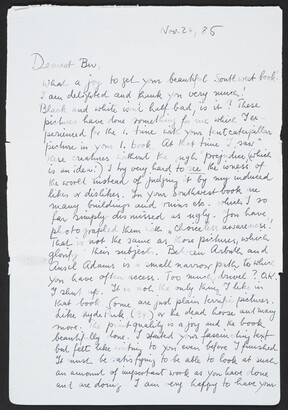 Nov. 24, 85
Dearest Bev.
What a joy to get your beautiful Southwest book!
I am delighted and thank you very much!
Black and white isn't half bad, is it? These
pictures have done something for me which I ex-
perienced for the 1. time with your
picture in your 1. book. At that time I saw
these creatures without the prejudice (which
is an idea!) I try very hard to see the isness of
the world instead of judging it by my induced
likes or dislikes. In your Southwest book are
many buildings and ruins etc. which I so
far simply dismissed as ugly. You have
photographed them with a choiceless awareness.
That is not the same as those pictures, which
glorify their subject. Between Arbate and
Ansel Adams is a small narrow path to which
you have access. Too much drivel? O.K.
I shut up. It is not the only thing I like in
that book. Some are just plain terrific pictures.
Like or the dead horse and many
more. The print quality is a joy and the book
beautifully done. I started your fascinating text
but felt like writing to you even before I finished.
It must be satisfying to be able to look at such
an amount of important work as you have done
and are doing. I am very happy to have you